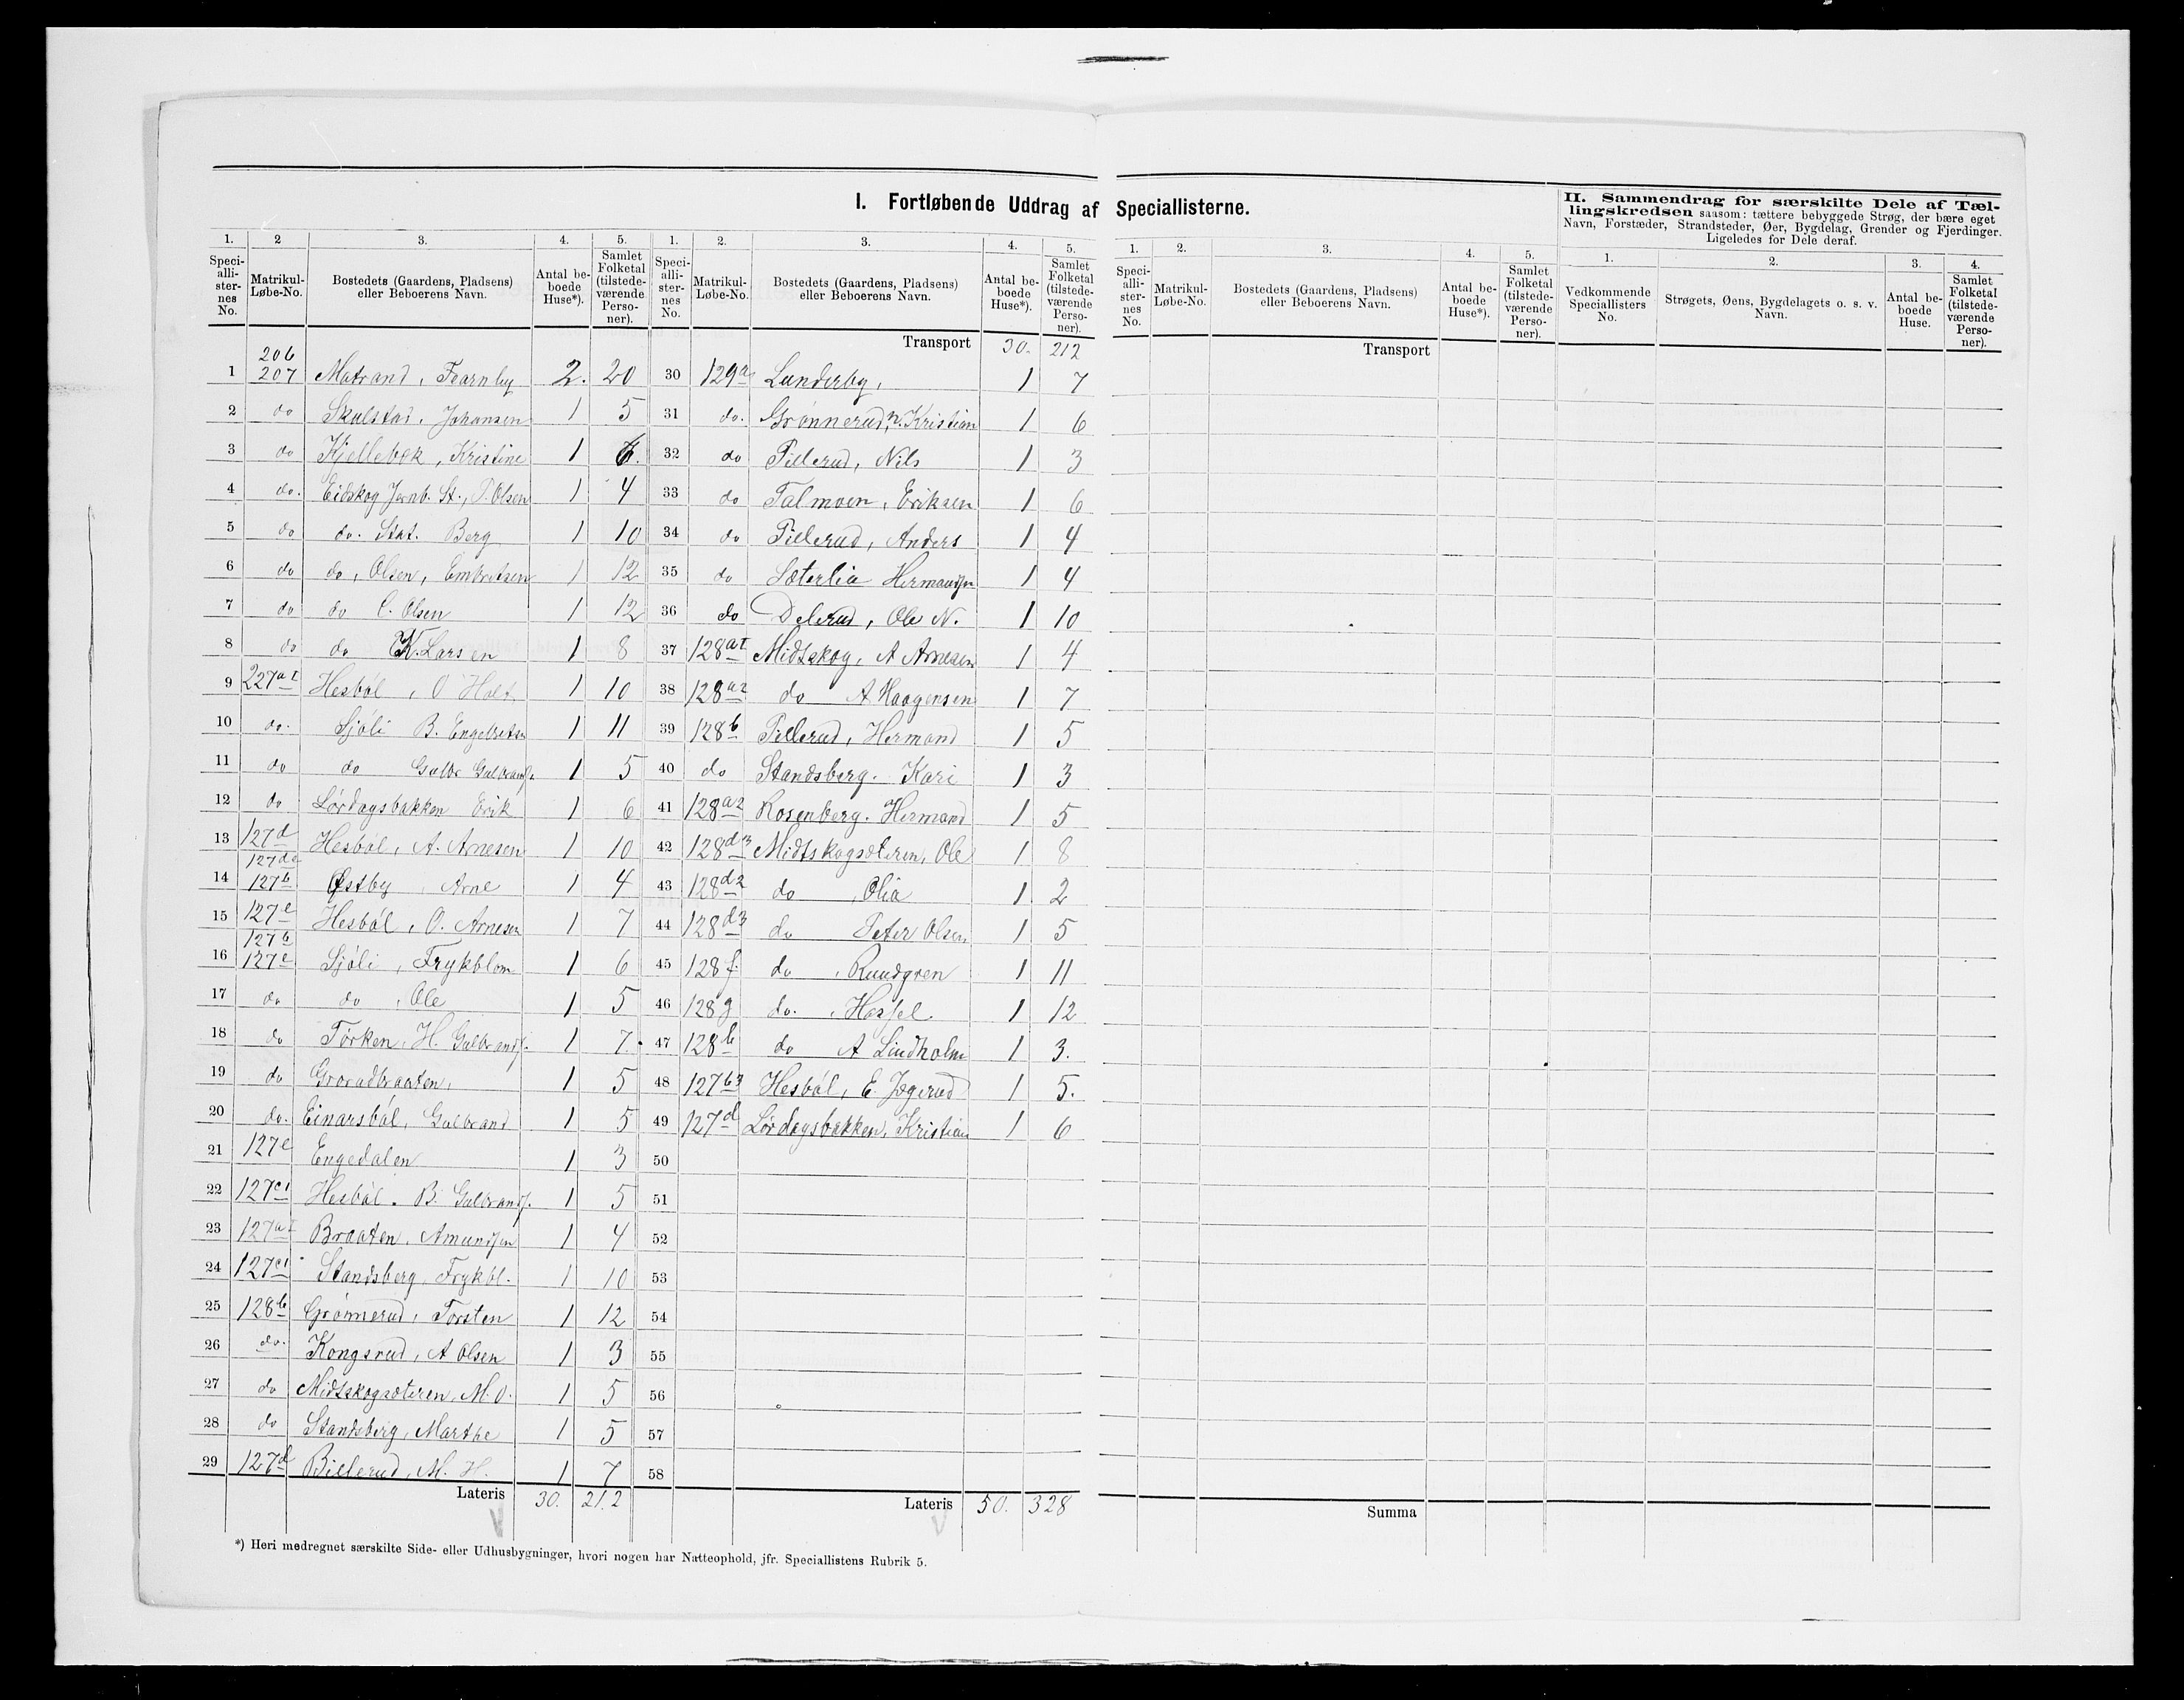 I. Fortløbende Uddrag af Speciallisterne.
1. 2 3. 4. 5.
Speciallisternes No. Matrikul-Løbe-No. Bostedets (Gaardens, Pladsens) eller Beboerens Navn. Antal beboede Huse*). Samlet Folketal (tilstedeværende Personer).
206
1 207 Matrand, Fearnley 2. 20
2 do Skulstad, Johansen 1 5
3 do Kjellebæk, Kristine 1 6.
4 do. Eidskog Jernb. St., P. Olsen 1 4
5 do do. Stat. Berg 1 10
6 do do, Olsen, Embretsen 1 12
7 do do C. Olsen 1 12
8 do do K. Larsen 1 8
9 227a1 Hesböl, O Holt 1 10
10 do. Sjöli B. Engebretsn 1 11
11 do do Gulbr Gulbrands. 1 5
12 do Lördagsbakken Erik 1 6
13 127d Hesböl, A. Arnesen 1 10
127de
14 127b Østby, Arne 1 4
15 127e Hesböl, O. Arnesen 1 7
127b
16 127e Sjöli, Frykblom 1 6
17 do do, Ole 1 5
18 do Törken, H. Gulbrands. 1 7.
19 do Grorudbraaten, 1 5
20 do. Einarsböl, Gulbrand 1 5
21 127e Engedalen 1 3
22 127c1 Hesböl. B. Gulbrands. 1 5
23 127a1 Braaten, Amundsen 1 4
24 127c1 Standsberg, Frykbl. 1 10
25 128b Grönnerud, Torsten 1 12
26 do. Kongsrud, A Olsen 1 3
27 do Midtskogsæteren, M. O. 1 5
28 do Standsberg, Marthe 1 5
29 127d Billerud, M. H. 1 7
Lateris 30. 212
1. 2. 3. 4. 5.
Speciallisternes No. Matrikul-Løbe-No. Bostedets (Gaardens, Pladsens) eller Beboerens Navn. Antal beboede Huse*). Samlet Folketal (tilstedeværende Personer).
Transport 30. 212
30 129a Lunderby, 1 7
31 do. Grønnerud, n. Kristian 1 6
32 do Pillerud, Nils 1 3
33 do Talmoen, Eriksen 1 6
34 do Pillerud, Anders 1 4
35 do Sæterlia Hermansn 1 4
36 do Delerud, Ole N. 1 10
37 128a1 Midtskog, A Arnesen 1 4
38 128a2 do A Haagensen 1 7
39 128b Pillerud, Hermand 1 5
40 do Standsberg. Kari 1 3
41 128a2 Rosenberg. Hermand 1 5
42 128d3 Midtskogsæteren, Ole 1 8
43 128d2 do, Olia 1 2
44 128d3 do Peter Olsen 1 5
45 128f. do, Ruudgren 1 11
46 128g do., Hassel 1 12
47 128b do A Lindholm 1 3.
48 127b3 Hesböl, E. Jogerud 1 5.
49 127d Lördagsbakken, Kristian 1 6
50
51
52
53
54
55
56
57
58
Lateris 50. 328
1. 2. 3. 4. 5.
Speciallisternes No. Matrikul-Løbe-No. Bostedets (Gaardens, Pladsens) eller Beboerens Navn. Antal beboede Huse*). Samlet Folketal (tilstedeværende Personer).
Transport
Summa
II. Sammendrag for særskilte Dele af Tæl-
lingskredsen saasom: tættere bebyggede Strøg, der bære eget
Navn, Forstæder, Strandsteder, Øer, Bygdelag, Grender og Fjerdinger.
Ligeledes for Dele deraf.
1. 2. 3. 4.
Vedkommende Speciallisters No. Strøgets, Øens, Bygdelagets o. s. v. Navn. Antal beboede Huse. Samlet Folketal (tilstedeværende Personer).
*) Heri medregnet særskilte Side- eller Udhusbygninger, hvori nogen har Natteophold, jfr. Speciallistens Rubrik 5.